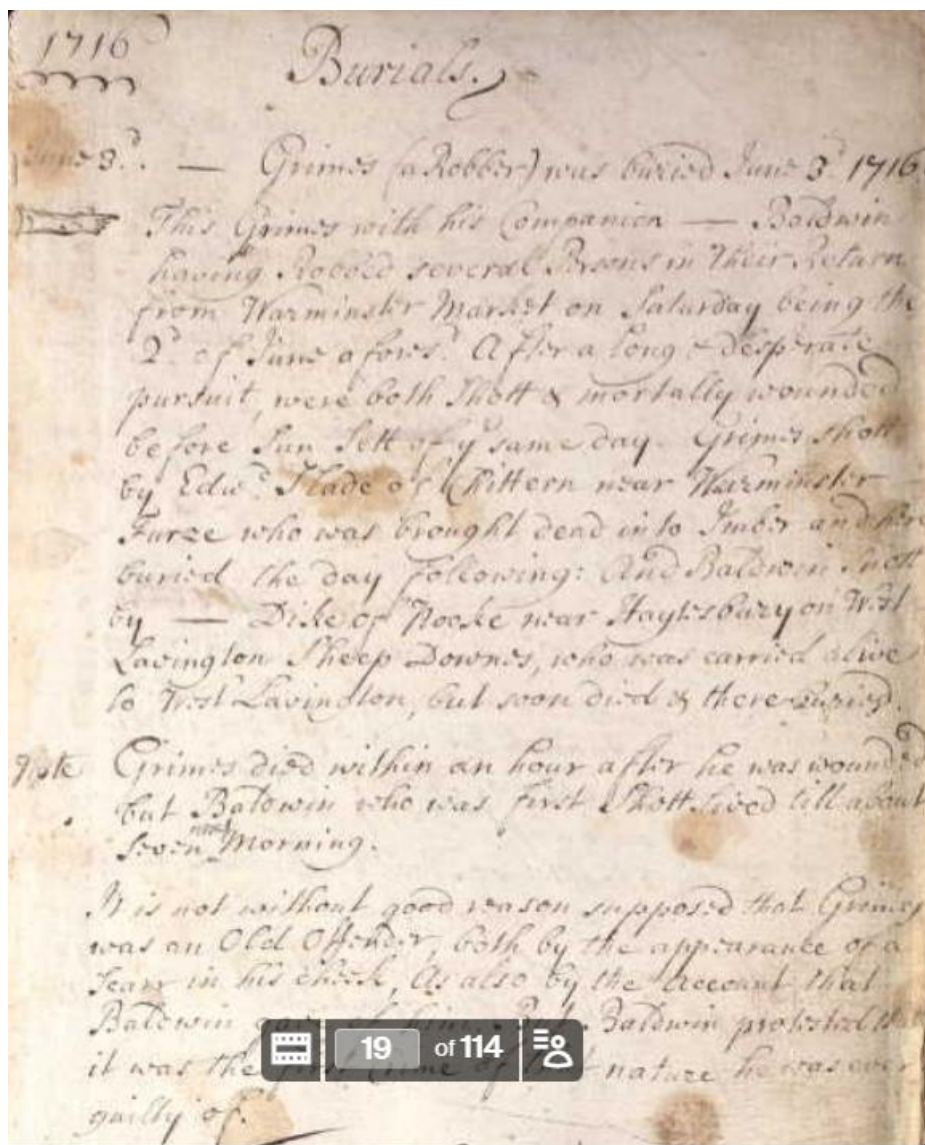 1716
Burials.
June 3d. — Grimes (a Robber) was buried June 3d 1716.
This Grimes with his Companion — Baldwin
having Robbed several Persons in their Return
from Warminster Market on Saturday being the
2d of June aforesd. After a long & desperate
pursuit, were both Shott & mortally wounded
before Sun Sett of ye same day. Grimes shott
by Edwd. Slade of Chittern near Warminster
Furze who was brought dead into Imber and here
buried the day following: And Baldwin shott
by — Dike of near Haytesbury on West
Lavington Sheep Downes, who was carried alive
to West Lavington, but soon died & there buried.
Note Grimes died within an hour after he was wounded
but Baldwin who was first Shott lived till about
seven next Morning.
It is not without good reason supposed that Grimes
was an Old Offender, both by the appearance of a
Scarr in his cheek, As also by the Account that
Baldwin Baldwin protested that
19 of 114
it was the of nature he was ever
guilty of.